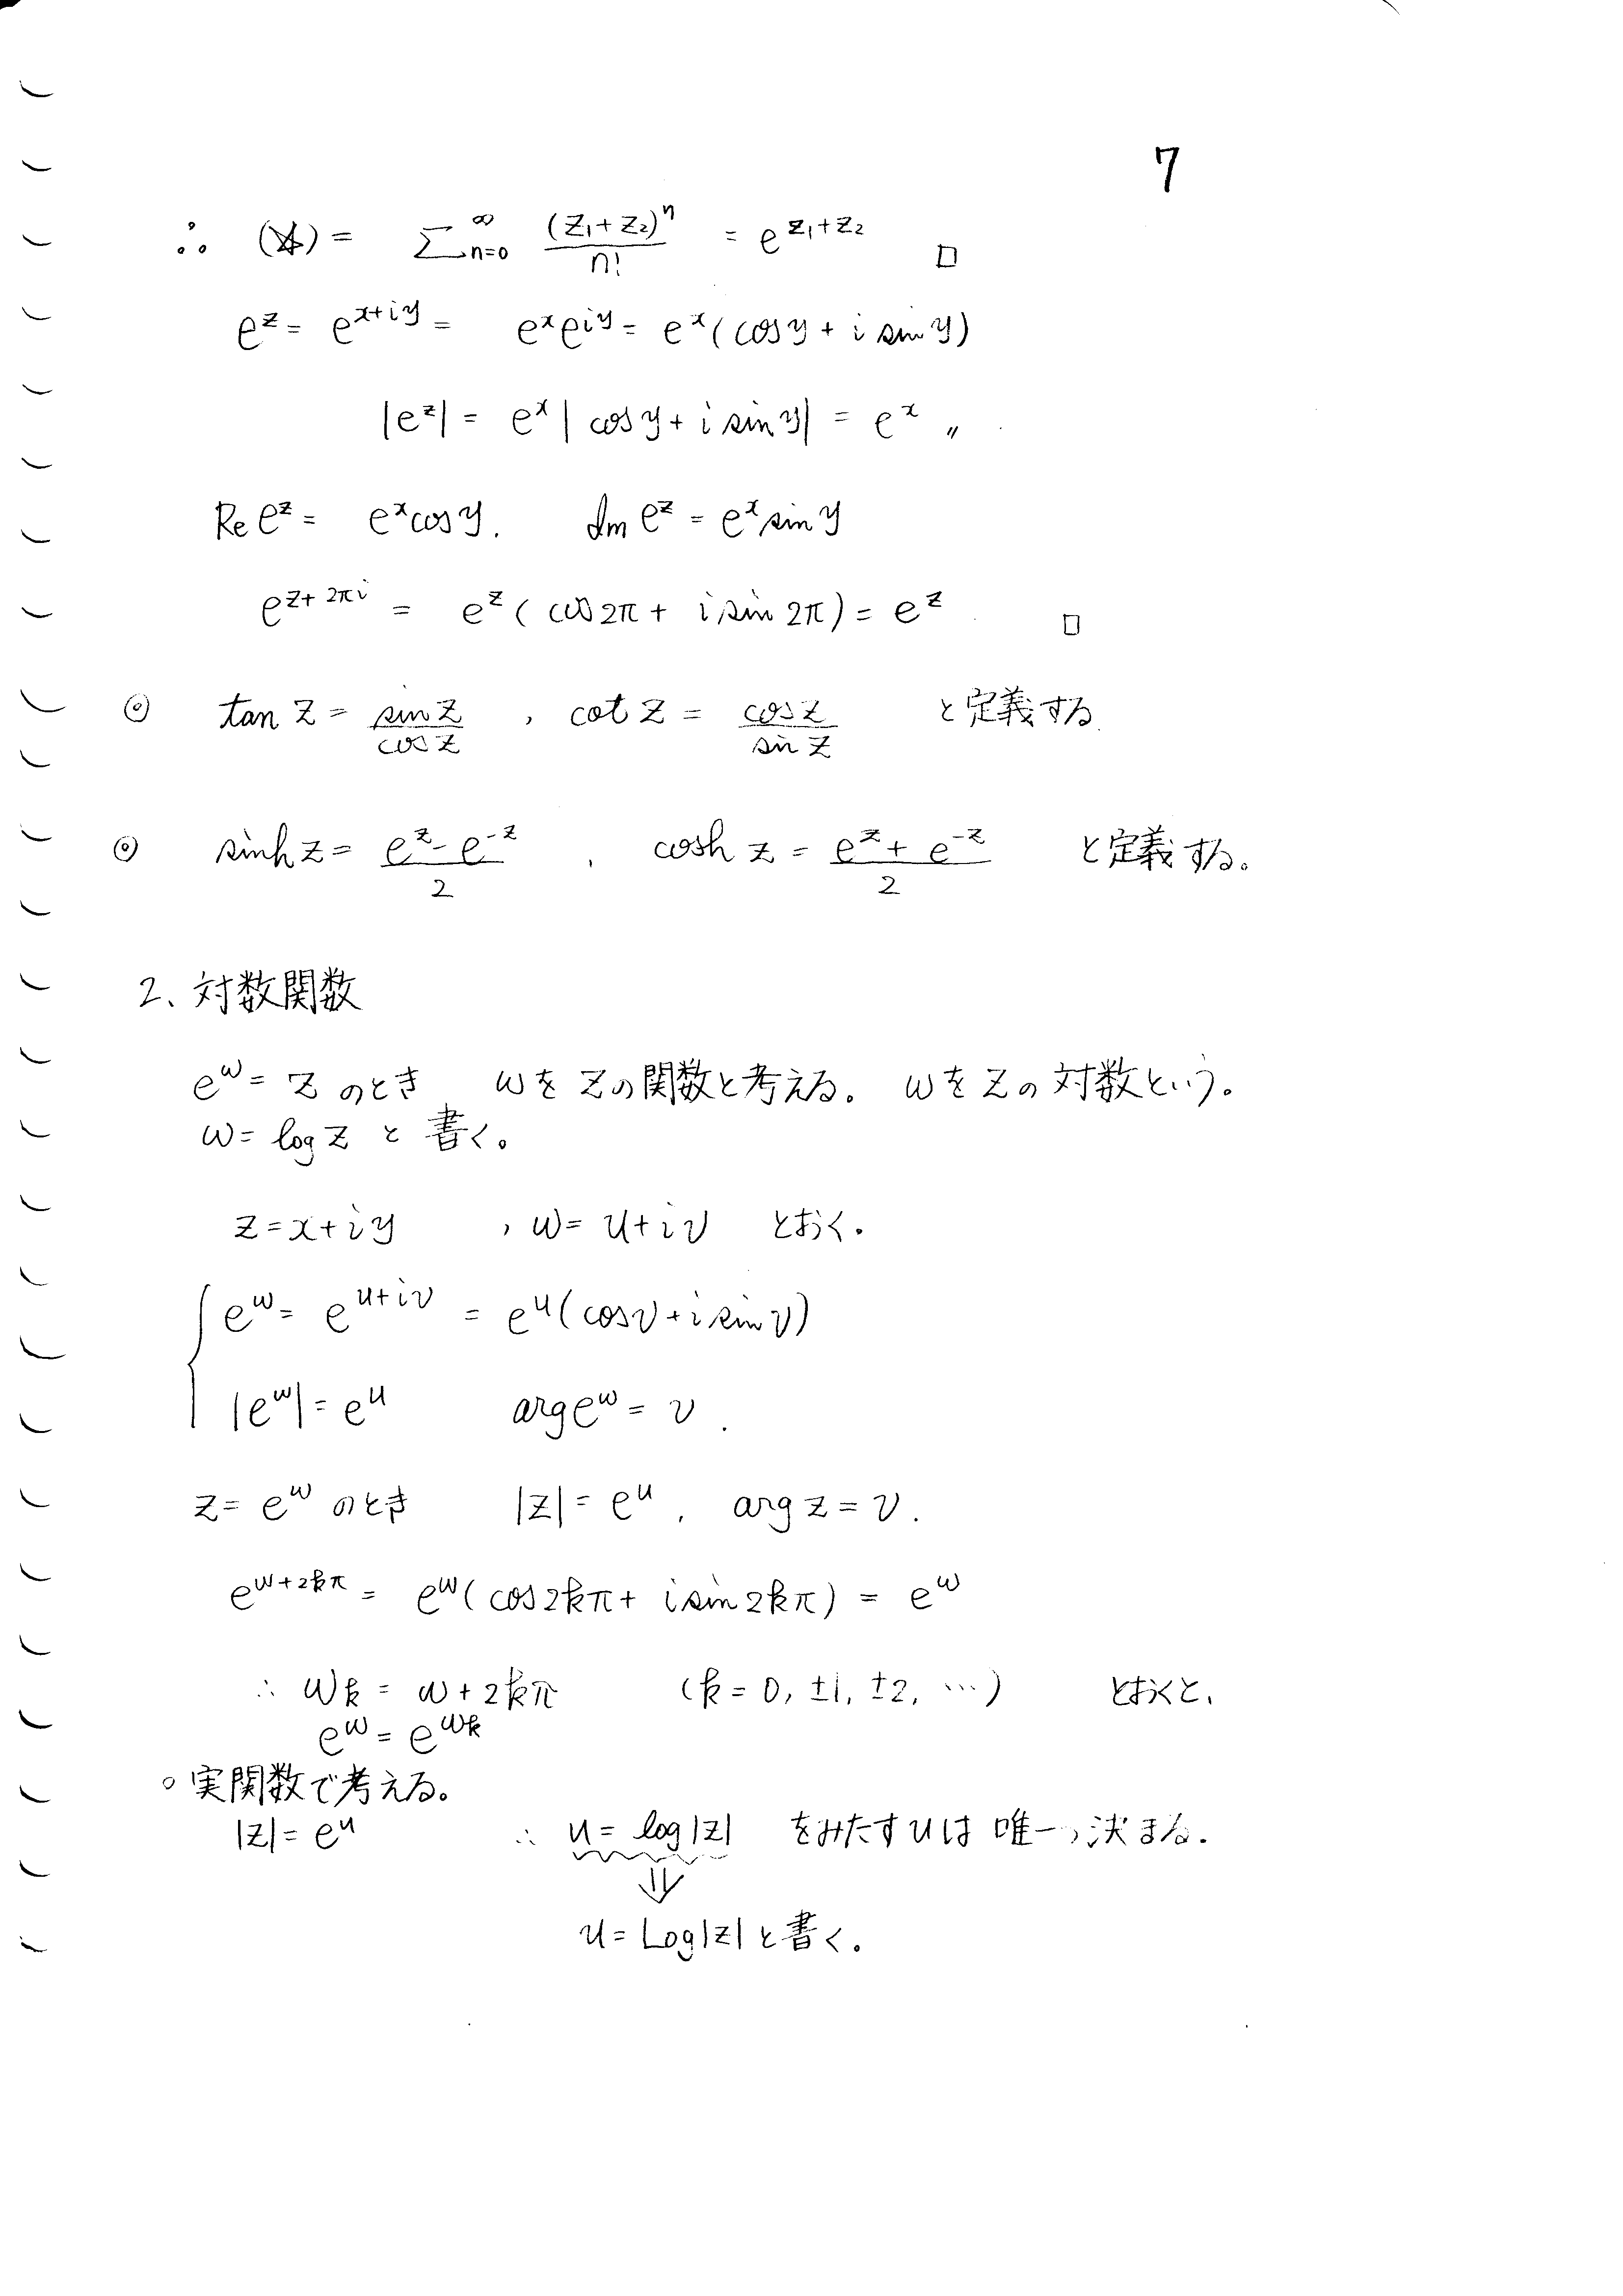 7
∴ (☆) = Σ_{n=0}^{∞} (z₁+z₂)^n / n! = e^{z₁+z₂} □
e^z = e^{x+iy} = e^x e^{iy} = e^x (cos y + i sin y)
|e^z| = e^x | cos y + i sin y| = e^x 〃
Re e^z = e^x cos y. Im e^z = e^x sin y
e^{z+2πi} = e^z ( cos 2π + i sin 2π ) = e^z □
◎ tan z = sin z / cos z , cot z = cos z / sin z と定義する.
◎ sinh z = (e^z - e^{-z}) / 2 , cosh z = (e^z + e^{-z}) / 2 と定義する。
2、対数関数
e^w = z のとき wをzの関数と考える。 wをzの対数という。
w = log z と書く。
z = x+iy , w = u+iv とおく.
e^w = e^{u+iv} = e^u (cos v + i sin v)
|e^w| = e^u arg e^w = v .
z = e^w のとき |z| = e^u , arg z = v .
e^{w+2kπ} = e^w ( cos 2kπ + i sin 2kπ ) = e^w
∴ w_k = w + 2kπ (k = 0, ±1, ±2, …) とおくと,
e^w = e^{w_k}
○ 実関数で考える。
|z| = e^u ∴ u = log|z| をみたすuは唯一つ決まる.
⇓
u = Log|z| と書く。